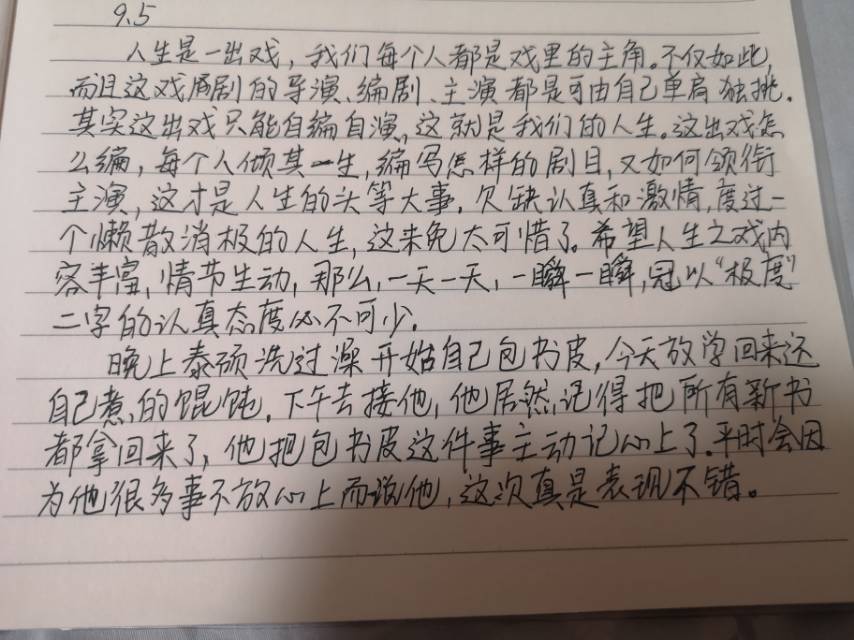 9.5
人生是一出戏，我们每个人都是戏里的主角。不仅如此，
而且这戏剧的导演、编剧、主演都是可由自己单肩独挑.
其实这出戏只能自编自演，这就是我们的人生。这出戏怎
么编，每个人倾其一生，编写怎样的剧目，又如何领衔
主演，这才是人生的头等大事.欠缺认真和激情，度过一
个懒散消极的人生，这未免太可惜了。希望人生之戏内
容丰富，情节生动，那么，一天一天，一瞬一瞬，冠以“极度”
二字的认真态度必不可少.
晚上泰硕洗过澡开始自己包书皮，今天放学回来还
自己煮的馄饨.下午去接他，他居然记得把所有新书
都拿回来了，他把包书皮这件事主动记心上了.平时会因
为他很多事不放心上而说他，这次真是表现不错。